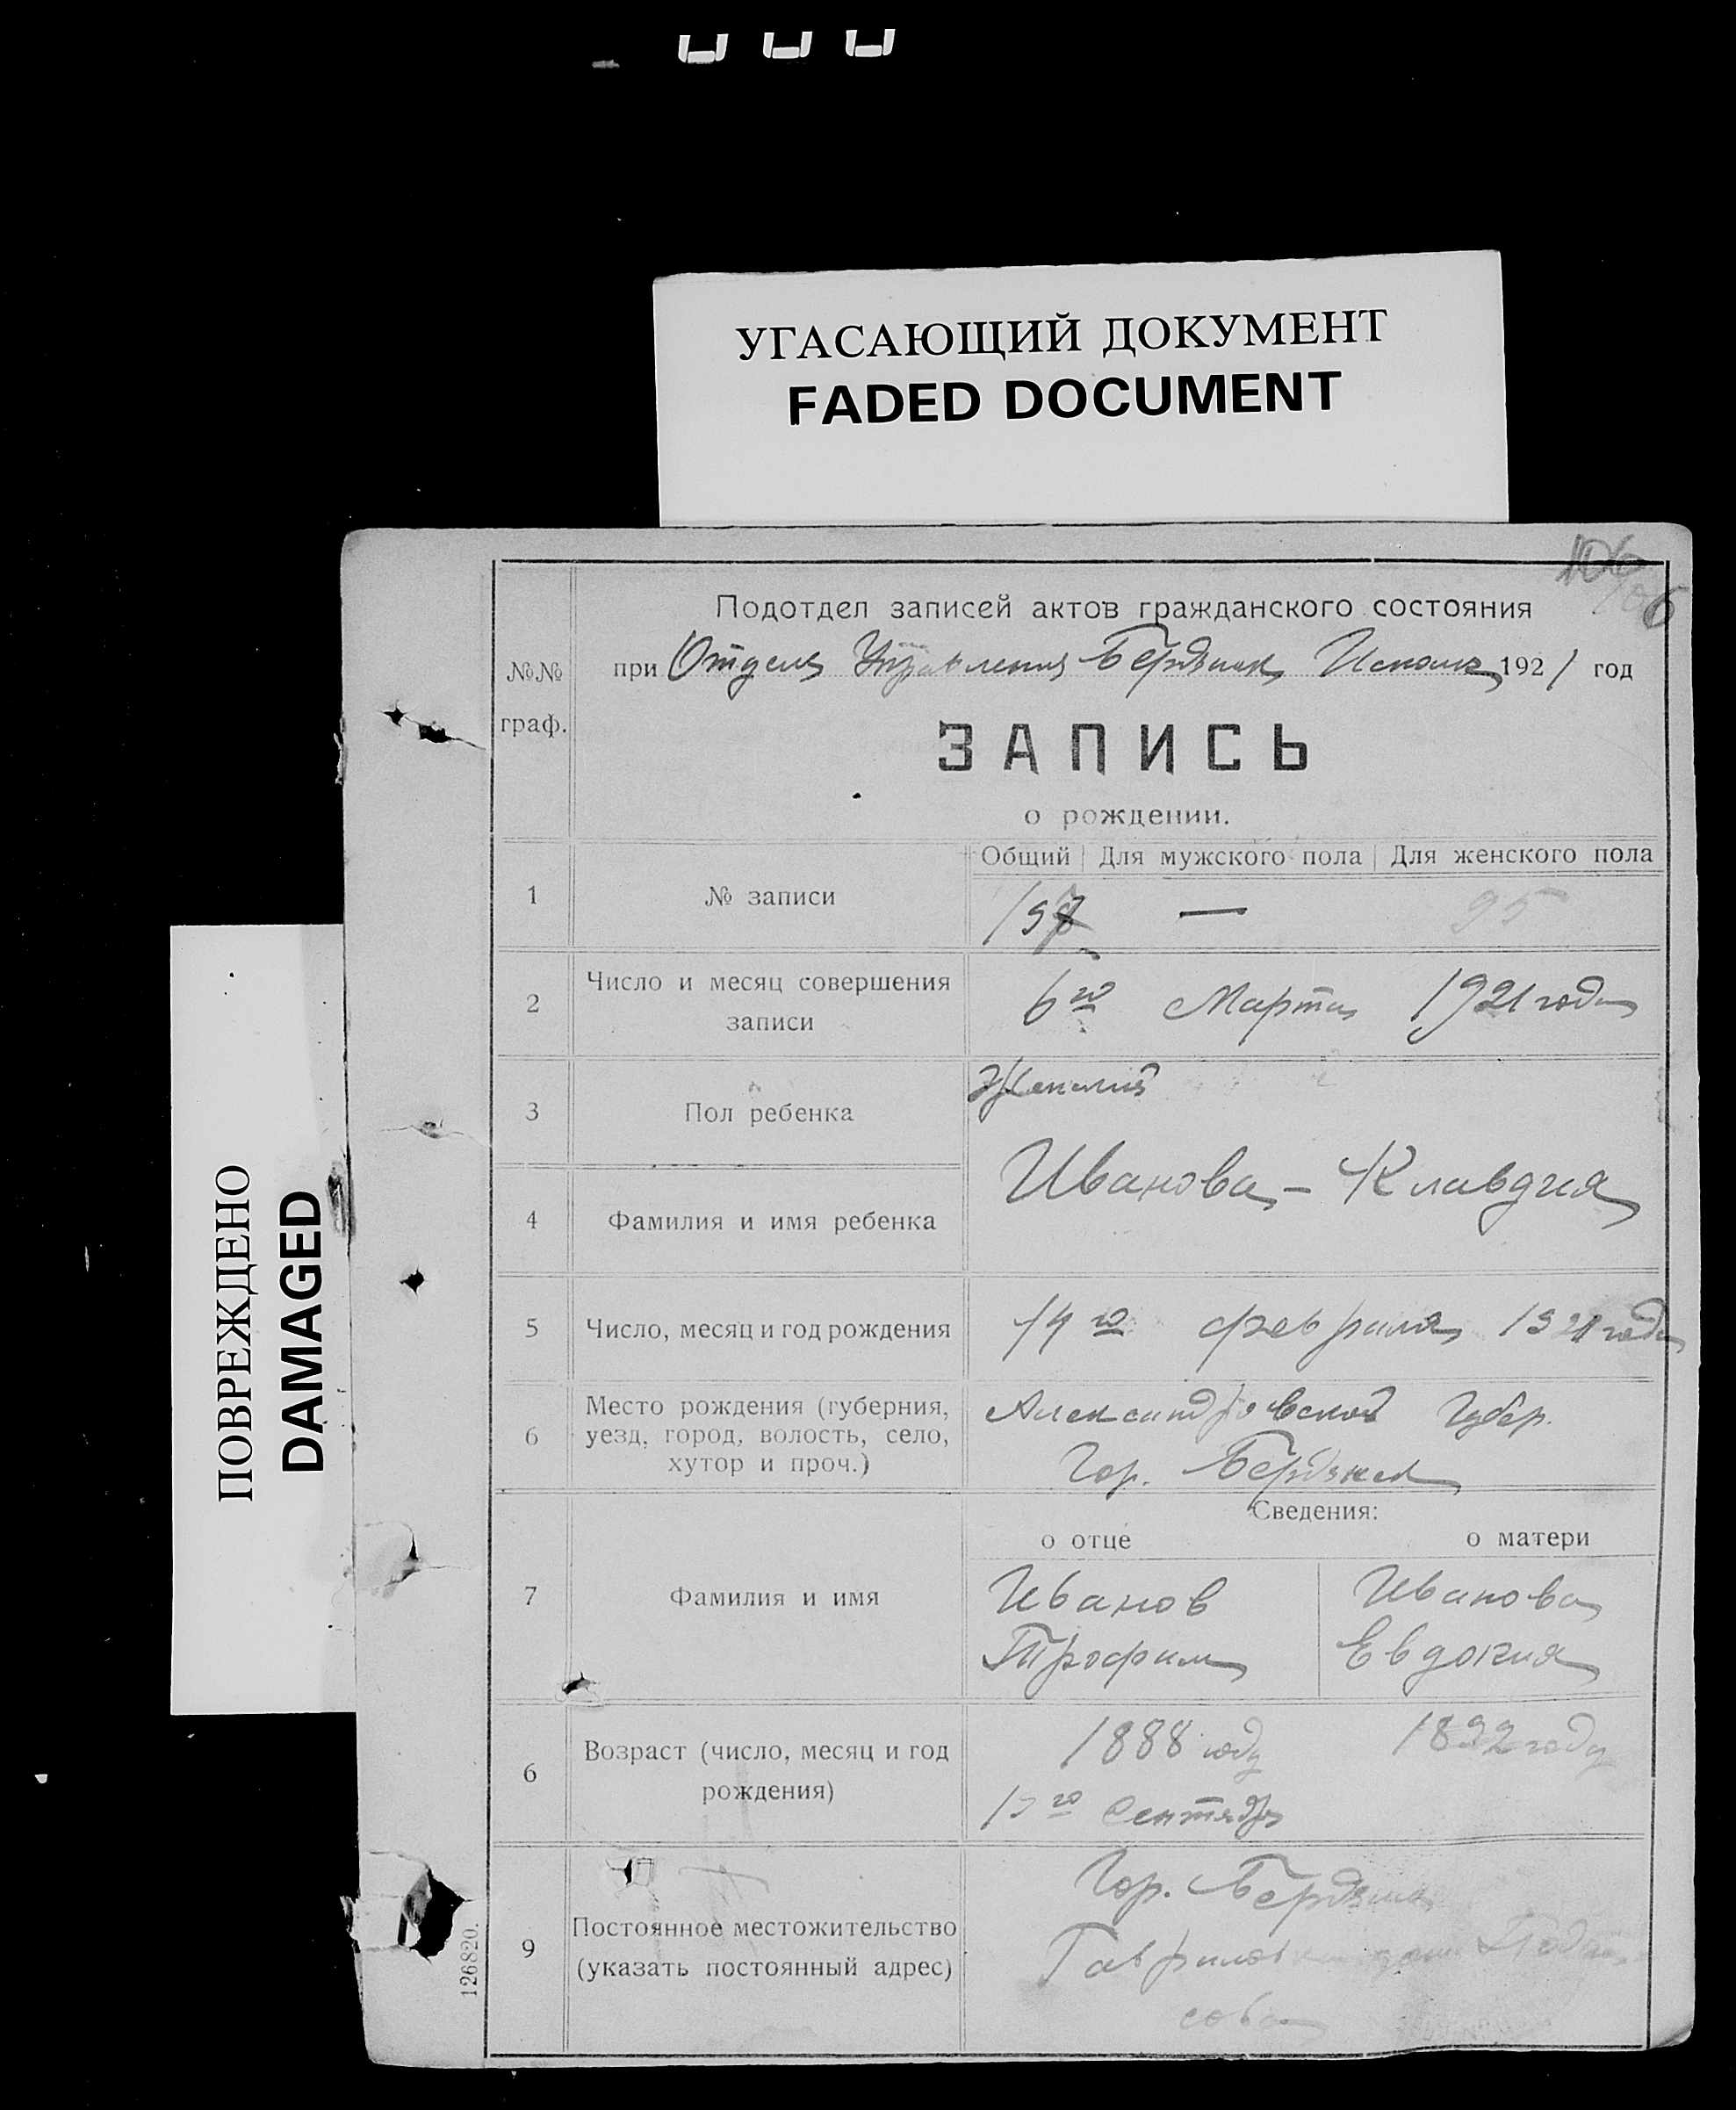 УГАСАЮЩИЙ ДОКУМЕНТ
FADED DOCUMENT
ПОВРЕЖДЕНО
DAMAGED
106
Подотдел записей актов гражданского состояния
№№ граф.
при Отделе Управления Бердянск Исполк 1921 год
ЗАПИСЬ
о рождении.
Общий Для мужского пола Для женского пола
1 № записи — 95
2 Число и месяц совершения записи 6го Марта 1921 года
3 Пол ребенка Женский
4 Фамилия и имя ребенка Иванова - Клавдия
5 Число, месяц и год рождения 14го февраля 1921 года
6 Место рождения (губерния, уезд, город, волость, село, хутор и проч.) Александровской Губер.
Гор. Бердянск
Сведения:
о отце о матери
7 Фамилия и имя Иванов Иванова
Трофим Евдокия
6 Возраст (число, месяц и год рождения) 1888 году 1892 году
Сентября
9 Постоянное местожительство (указать постоянный адрес) Гор. Бердянск
126820.